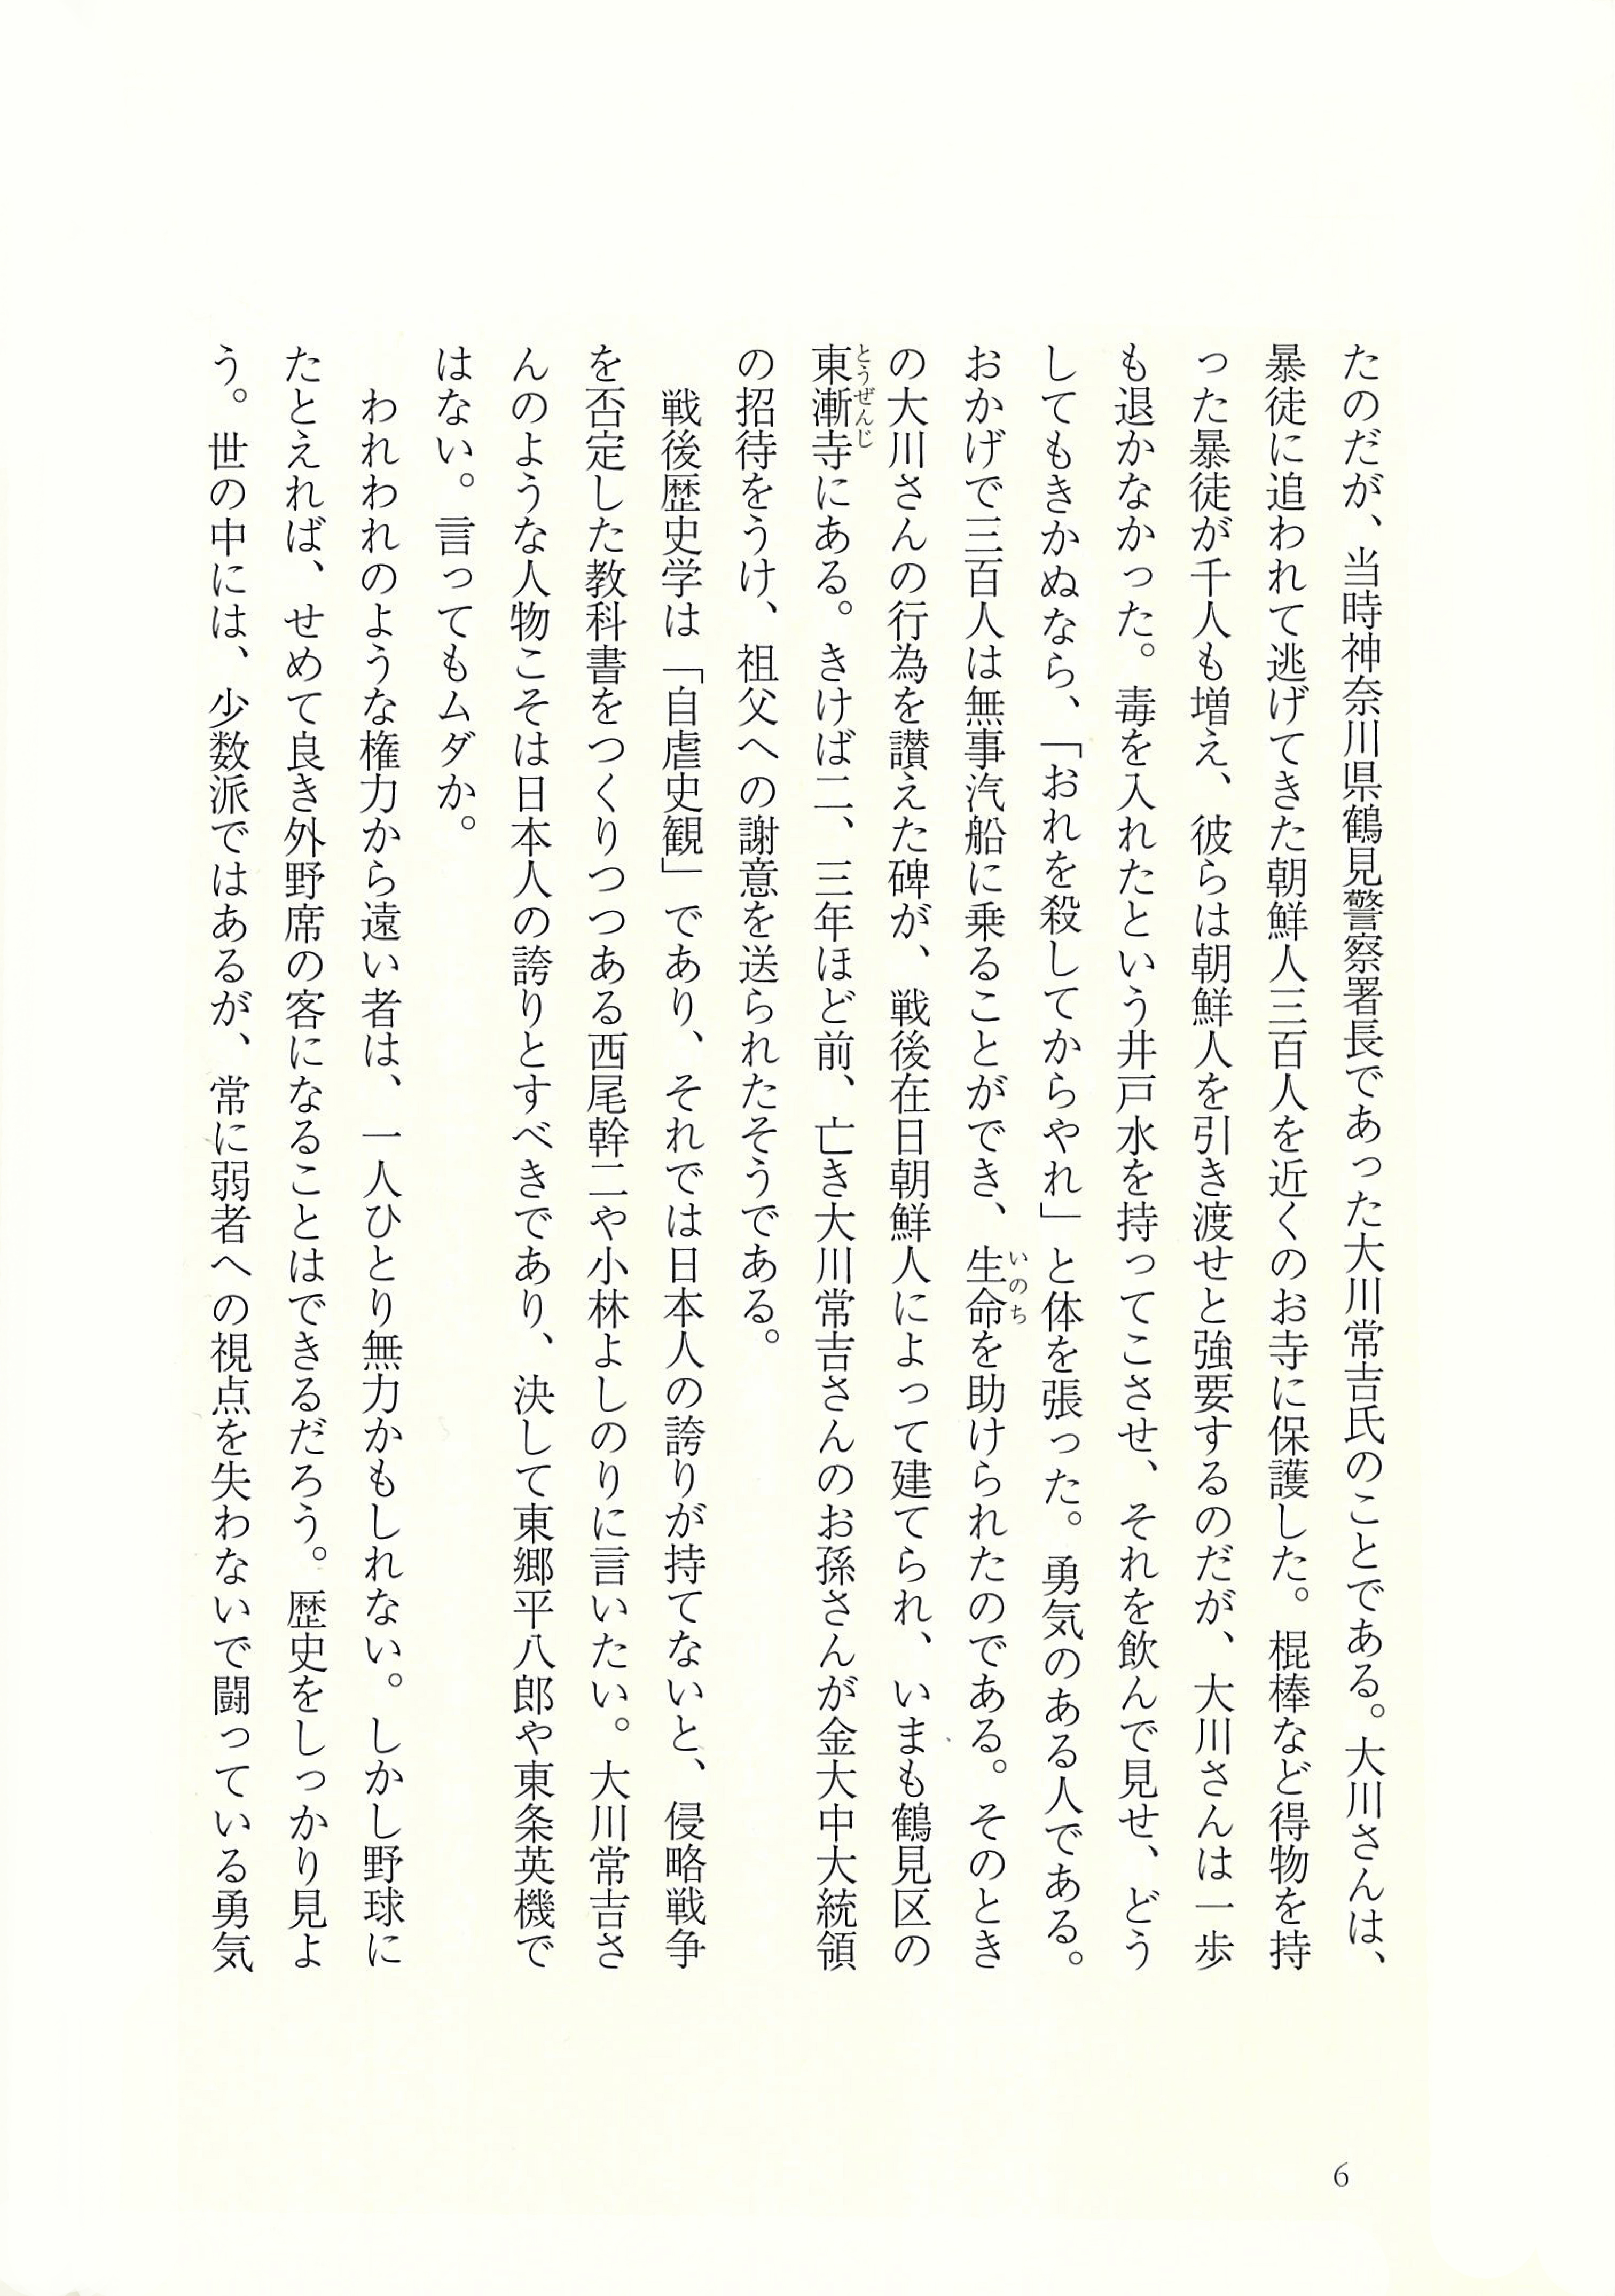 たのだが、当時神奈川県鶴見警察署長であった大川常吉氏のことである。大川さんは、
暴徒に追われて逃げてきた朝鮮人三百人を近くのお寺に保護した。棍棒など得物を持
った暴徒が千人も増え、彼らは朝鮮人を引き渡せと強要するのだが、大川さんは一歩
も退かなかった。毒を入れたという井戸水を持ってこさせ、それを飲んで見せ、どう
してもきかぬなら、「おれを殺してからやれ」と体を張った。勇気のある人である。
おかげで三百人は無事汽船に乗ることができ、生命を助けられたのである。そのとき
いのち
の大川さんの行為を讃えた碑が、戦後在日朝鮮人によって建てられ、いまも鶴見区の
東漸寺にある。きけば二、三年ほど前、亡き大川常吉さんのお孫さんが金大中大統領
とうぜんじ
の招待をうけ、祖父への謝意を送られたそうである。
戦後歴史学は「自虐史観」であり、それでは日本人の誇りが持てないと、侵略戦争
を否定した教科書をつくりつつある西尾幹二や小林よしのりに言いたい。大川常吉さ
んのような人物こそは日本人の誇りとすべきであり、決して東郷平八郎や東条英機で
はない。言ってもムダか。
われわれのような権力から遠い者は、一人ひとり無力かもしれない。しかし野球に
たとえれば、せめて良き外野席の客になることはできるだろう。歴史をしっかり見よ
う。世の中には、少数派ではあるが、常に弱者への視点を失わないで闘っている勇気
6